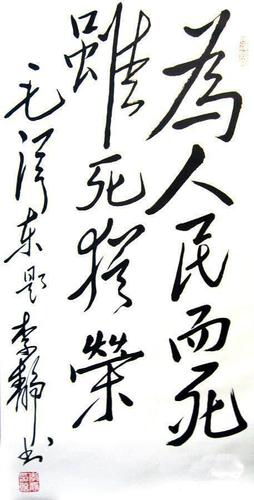 為人民而死
雖死猶榮
毛泽东题 李靜书